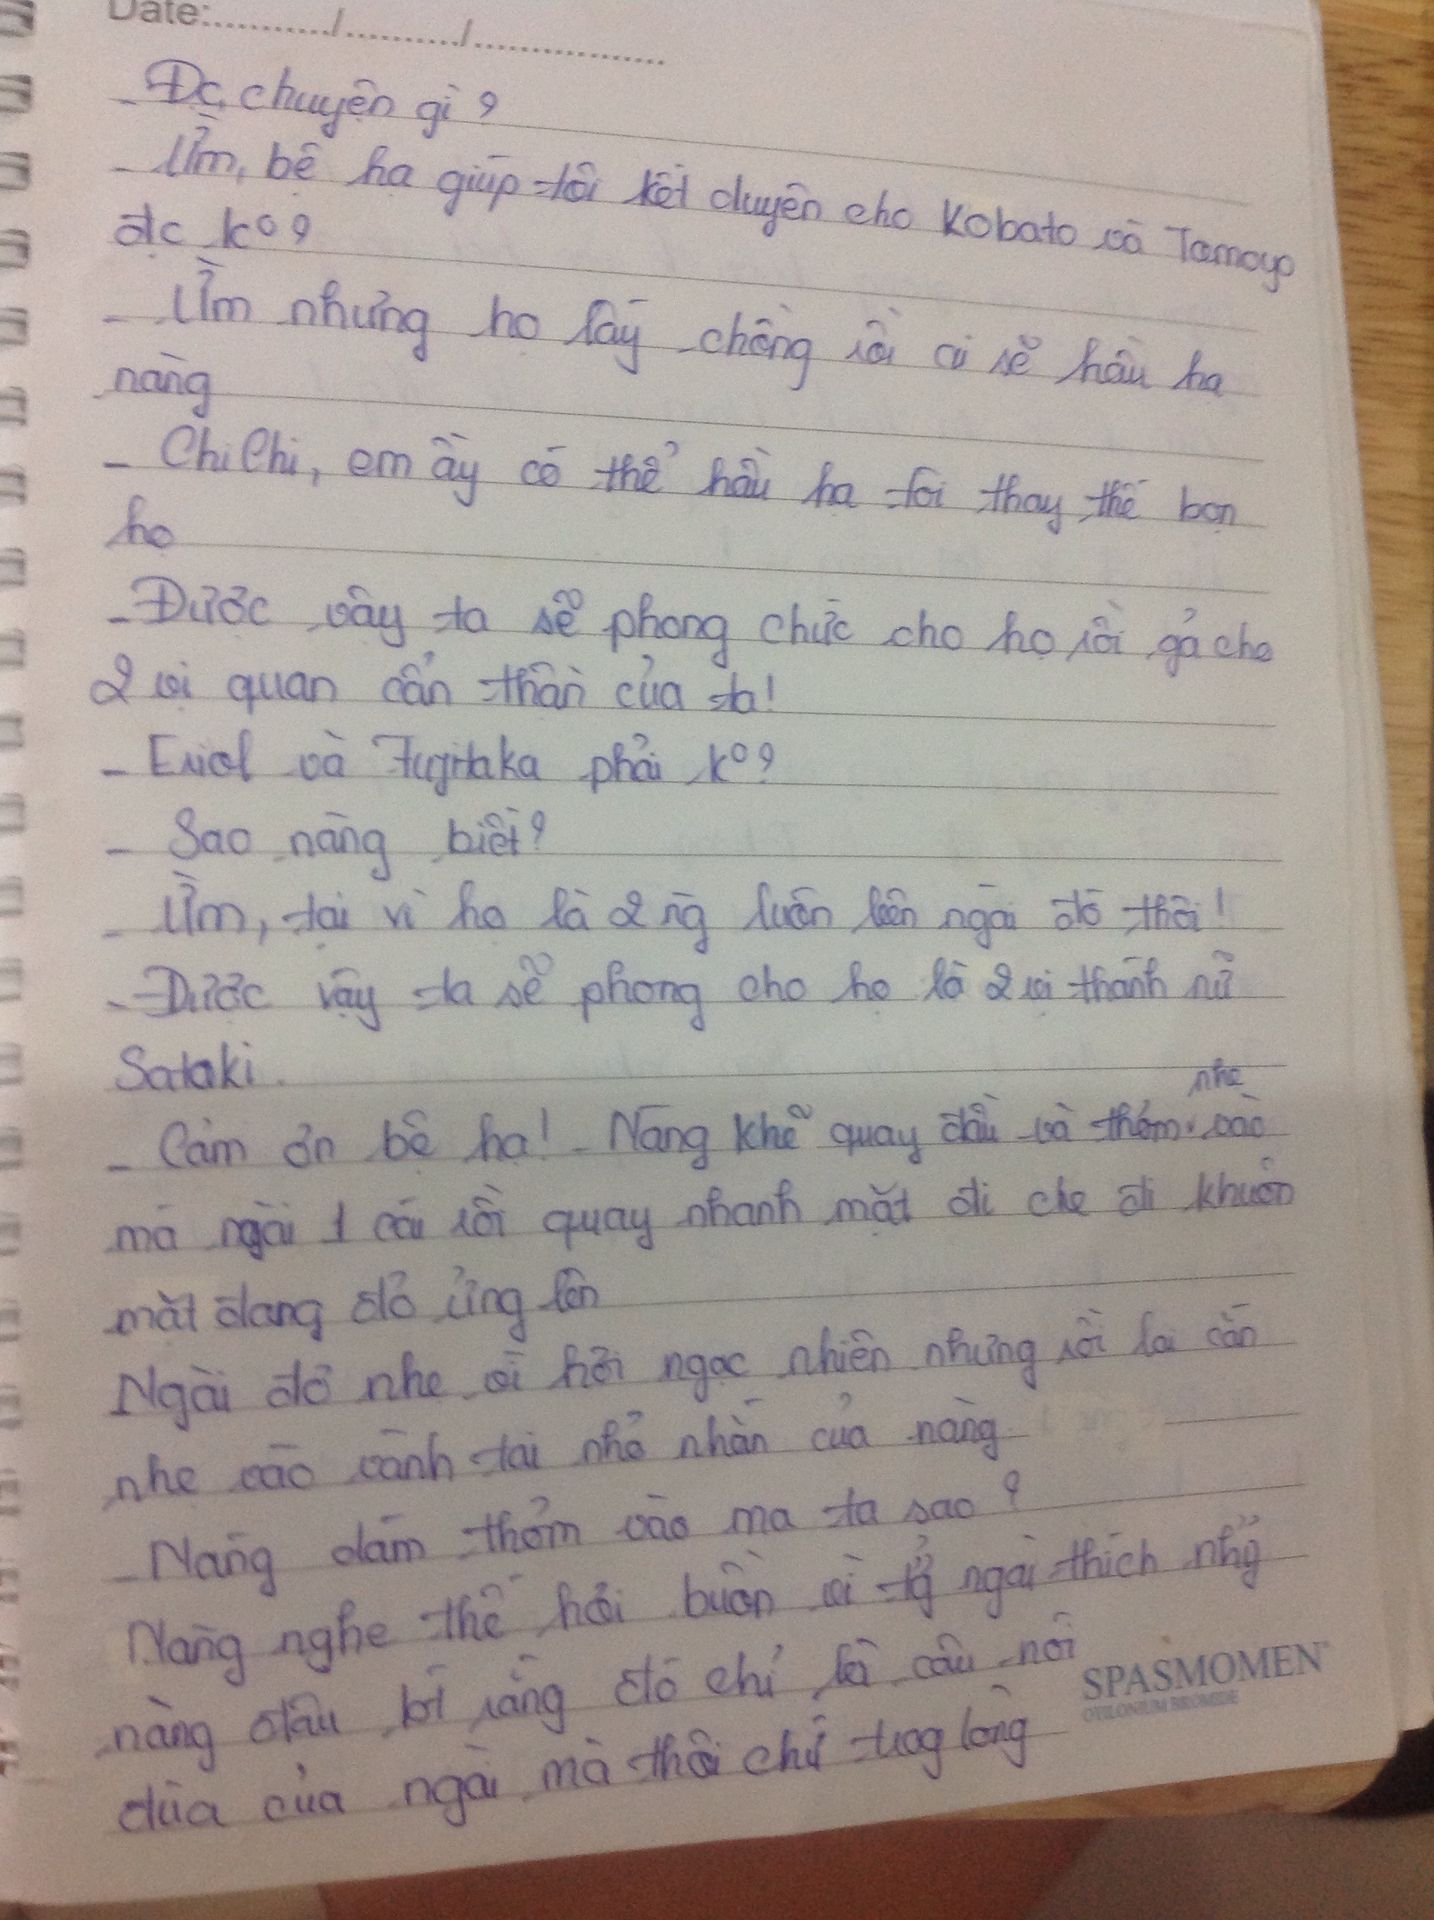 Date:........../........../................
- Đc, chuyện gì?
- Ừm, bệ hạ giúp tôi kết duyên cho Kobato và Tamoyo
đc ko?
- Ừm nhưng họ lấy chồng rồi ai sẽ hầu hạ
nàng
- ChiChi, em ấy có thể hầu hạ tôi thay thế bọn
họ
- Được vậy ta sẽ phong chức cho họ rồi gả cho
2 vị quan cẩn thần của ta!
- Eriol và Fujitaka phải ko?
- Sao nàng biết?
- Ừm, tại vì họ là 2 ng luôn bên ngài đó thôi!
- Được vậy ta sẽ phong cho họ là 2 vị thánh nữ
Sataki.
- Cảm ơn bệ hạ! - Nàng khẽ quay đầu và thơm nhẹ vào
má ngài 1 cái rồi quay nhanh mặt đi che đi khuôn
mặt đang đỏ ửng lên
Ngài đơ nhẹ vì hơi ngạc nhiên nhưng rồi lại cắn
nhẹ vào vành tai nhỏ nhắn của nàng
- Nàng dám thơm vào má ta sao?
Nàng nghe thế hơi buồn vì tg ngài thích nhg
nàng đâu bt rằng đó chỉ là câu nói
đùa của ngài mà thôi chứ trog lòng
SPASMOMEN
OTILONIUM BROMIDE